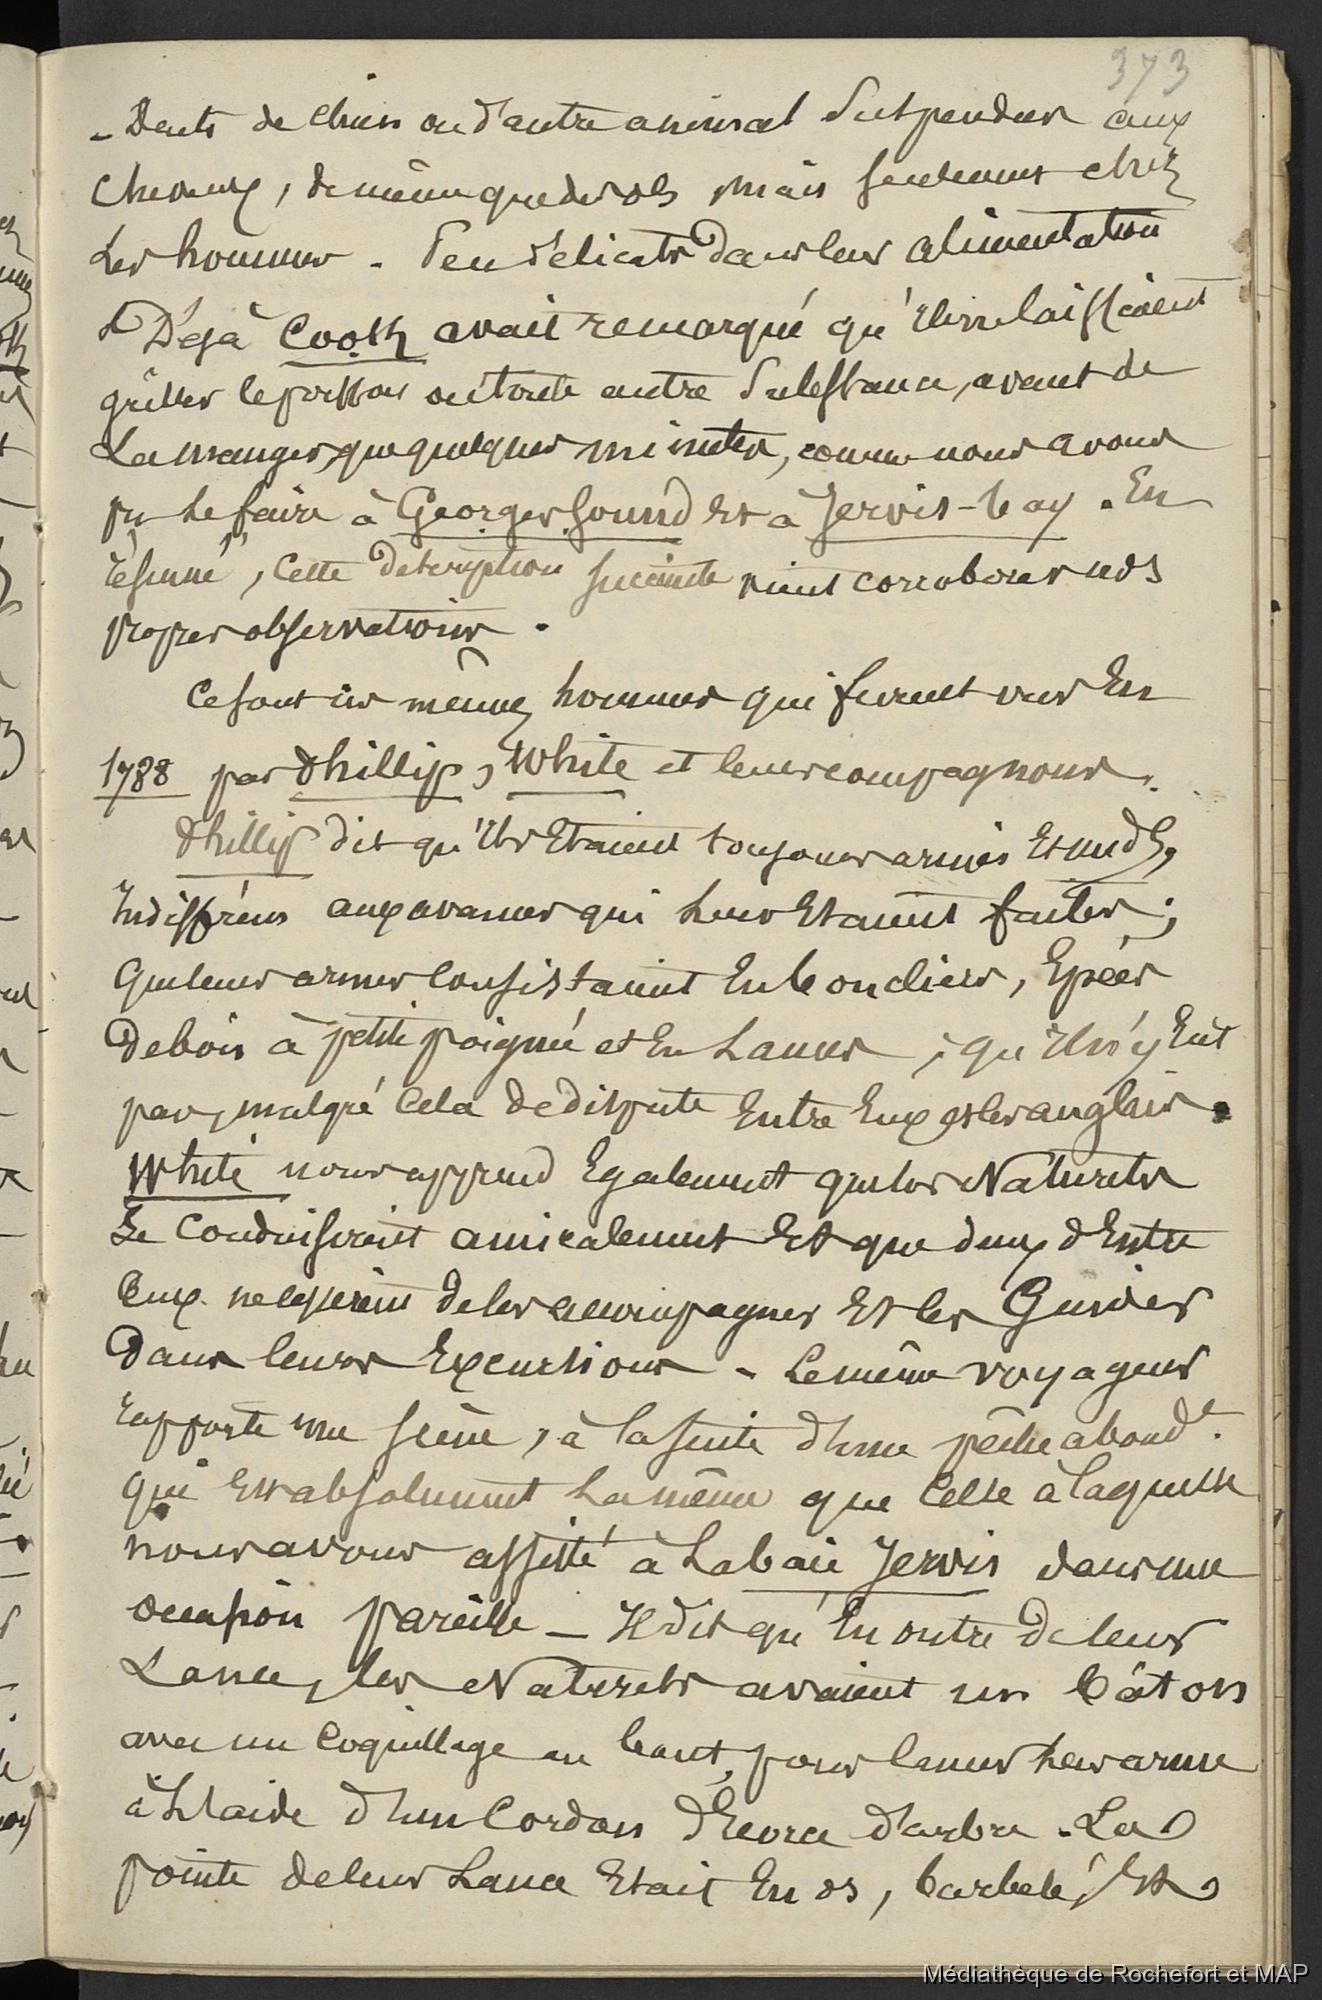 373
- Dents de chien ou d'autre animal suspendues aux
cheveux, de même que des os mais seulement chez
les hommes. Peu délicats dans leur alimentation
Déjà Cook avait remarqué qu'ils ne laissaient
griller le poisson ou toute autre substance, avant de
la manger, que quelques minutes, comme nous avons
pu le faire à Georges Sound et à Jervis-bay. En
résumé, cette description succincte vient corroborer nos
propres observations.
Ce sont les mêmes hommes qui furent vus en
1788 par Phillip, White et leurs compagnons.
Phillip dit qu'ils étaient toujours armés et nuds,
indifférens aux avances qui leur étaient faites ;
que leurs armes consistaient en boucliers, épées
de bois à petite poignée et en lances ; qu'il n'y eut
pas, malgré cela de dispute entre eux et les anglais.
White nous apprend également que les Naturels
se conduisirent amicalement et que deux d'entre
eux de les accompagner et les Guider
dans leurs excursions. Le même voyageur
rapporte une scène, à la suite d'une pêche abondte.
qui est absolument la même que celle à laquelle
nous avons assisté à la baie Jervis dans une
occasion pareille — Il dit qu'en outre de leur
Lance, les Naturels avaient un bâton
avec un coquillage au bout, pour lancer leur arme
à l'aide d'un cordon d'écorce d'arbre. La
pointe de leur Lance était en os, barbelé, et
Médiathèque de Rochefort et MAP